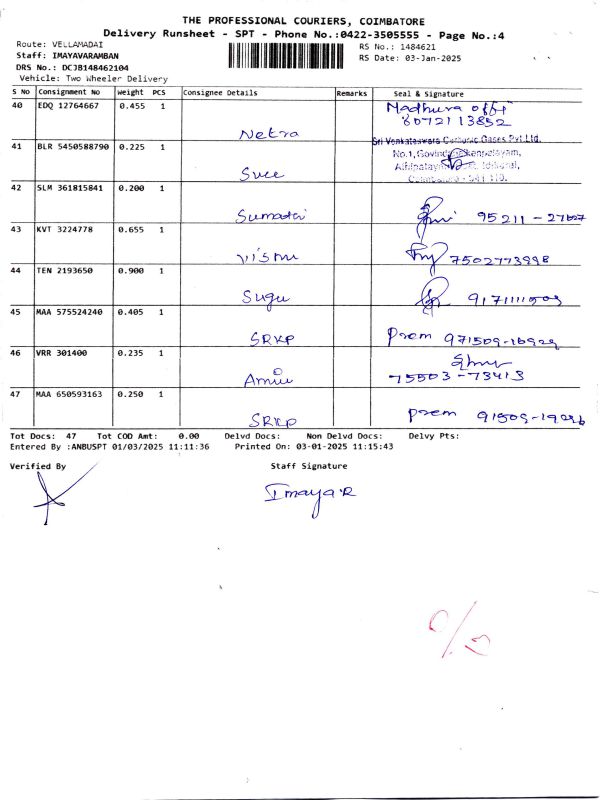 THE PROFESSIONAL COURIERS, COIMBATORE
Delivery Runsheet - SPT - Phone No.:0422-3505555 - Page No.:4
Route: VELLAMADAI
RS No.: 1484621
Staff: IMAYAVARAMBAN
RS Date: 03-Jan-2025
DRS No.: DCJB148462104
Vehicle: Two Wheeler Delivery
S No Consignment No Weight PCS Consignee Details Remarks Seal & Signature
40 EDQ 12764667 0.455 1 Netra Madhura
41 BLR 5450588790 0.225 1 Sree Sri Venkateswara Carbonic Gases Pvt.Ltd.
No.1,
42 SLM 361815841 0.200 1 Sumathi 95211 -
43 KVT 3224778 0.655 1 7502773998
44 TEN 2193650 0.900 1 Sugu
45 MAA 575524240 0.405 1 SRKP Prem
46 VRR 301400 0.235 1 75503 - 73413
47 MAA 650593163 0.250 1 SRKP Prem
Tot Docs: 47 Tot COD Amt: 0.00 Delvd Docs: Non Delvd Docs: Delvy Pts:
Entered By :ANBUSPT 01/03/2025 11:11:36 Printed On: 03-01-2025 11:15:43
Verified By Staff Signature
Imaya.R